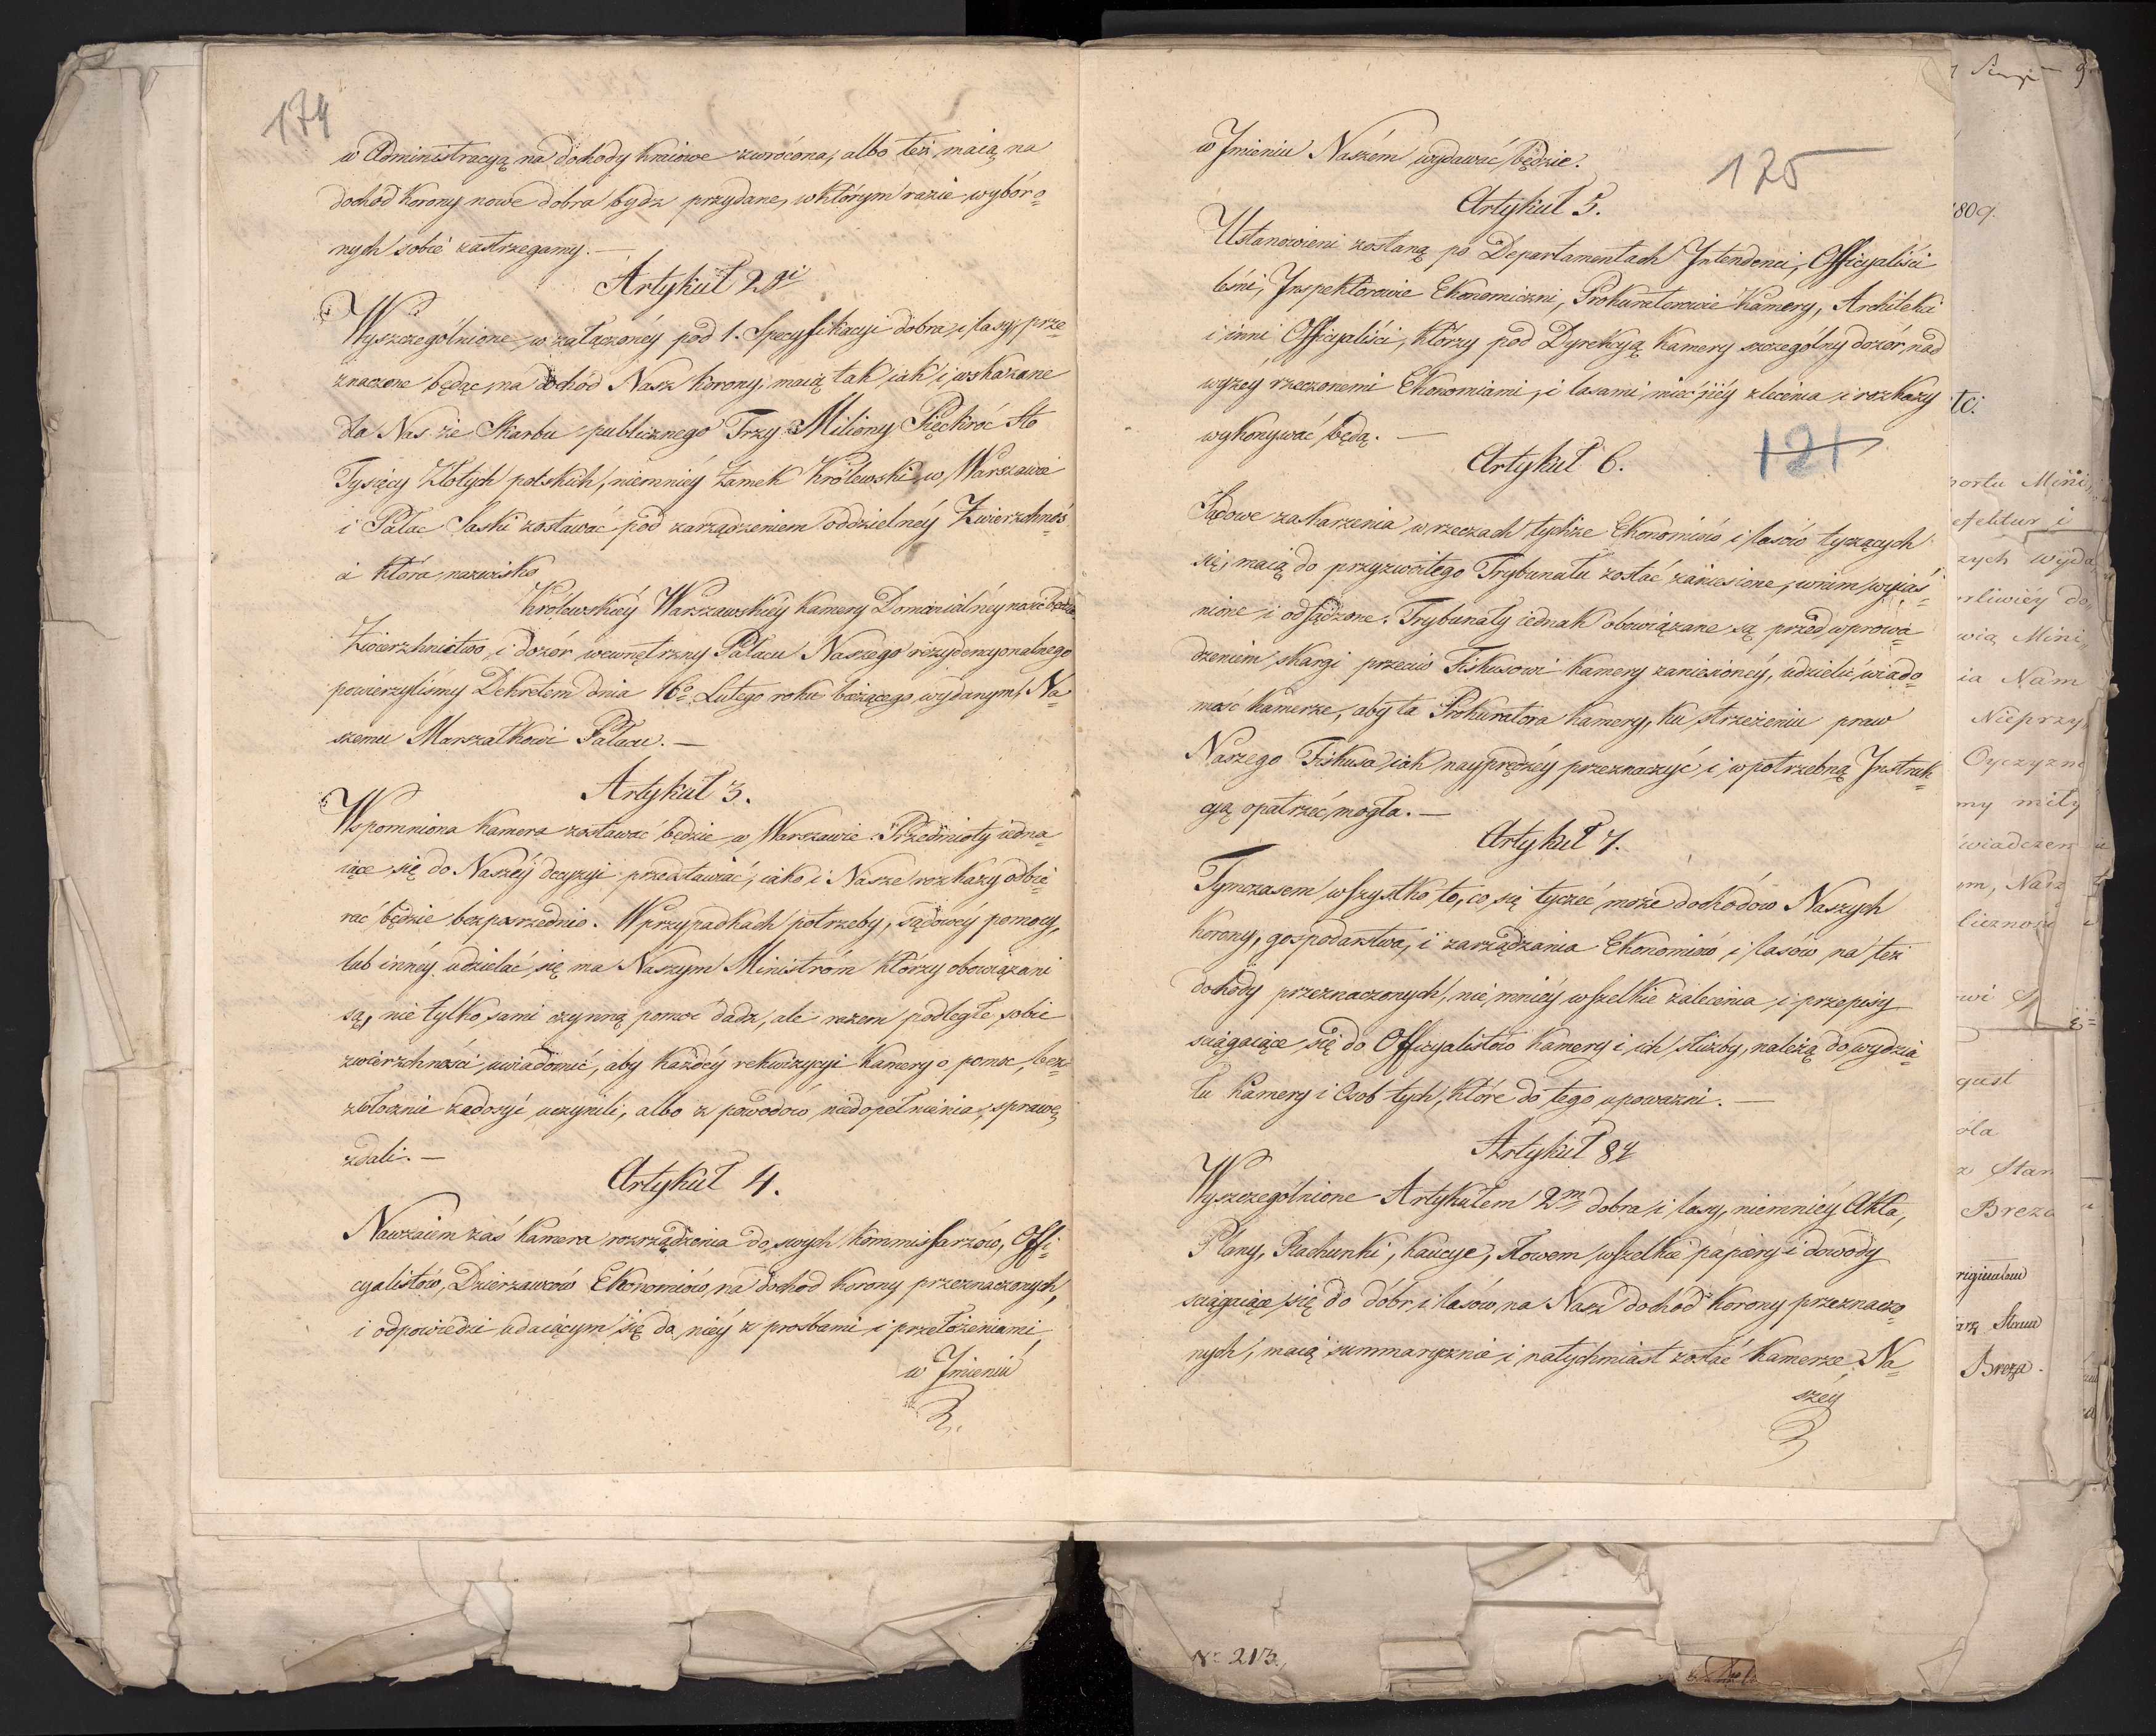 174
w Administracyą na dochody kraiowe zwrócona, albo też maią na
dochód Korony nowe dobra bydź przydane, w którym razie wybór o=
nych sobie zastrzegamy. —
Artykuł 2gi
Wyszczególnione w załączonéy pod 1. Specyfikacyi dobra i lasy, prze=
znaczone będąc na dochód Nasz korony, maią tak iak i wskazane
dla Nas ze Skarbu publicznego Trzy Miliony Pięckroć sto
Tysięcy Złotych polskich, niemniéy Zamek Królewski w Warszawie
i Pałac Saski zostawać pod zarządzeniem oddzielnéy Zwierzchnoś=
ci która nazwisko
Królewskiéy Warszawskiéy Kamery Dominialnéy nosić będzie
Zwierzchnictwo i dozór wewnętrzny Pałacu Naszego rezydencyonalnego
powierzyliśmy Dekretem dnia 16o Lutego roku bieżącego wydanym, Na=
szemu Marszałkowi Pałacu. —
Artykuł 3.
Wspomniona Kamera zostawać będzie w Warszawie. Przedmioty iedna=
iące się do Naszéy decyzyi przedstawiać, iako i Nasze rozkazy odbie=
rać będzie bezpośrzednio. W przypadkach potrzeby, sądowéy pomocy,
lub innéy udzielać się ma Naszym Ministróm którzy obowiązani
są, nie tylko sami czynną pomoc dadź, ale razem podległe sobie
zwierzchności uwiadomić, aby każdéy rekwizycyi Kamery o pomoc, bez=
zwłocznie zadosyć uczynili, albo z powodów niedopełnienia, sprawę
zdali. —
Artykuł 4.
Nawzaiem zaś Kamera rozrządzenia do swych Kommissarzów, Offi=
cyalistów, Dzierżawców Ekonomiów na dochod Korony przeznaczonych,
i odpowiedzi udaiącym się do niéy z prośbami i przełożeniami,
w Imieniu
w Imieniu Naszém wydawać będzie.
175
Artykuł 5.
Ustanowieni zostaną po Departamentach Intendenci, Officyaliści
leśni, Inspektorowie Ekonomiczni, Prokuratorowie Kamery, Architekci
i inni Officyaliści, którzy pod Dyrekcyą Kamery szczególny dozór nad
wyżey rzeczonemi Ekonomiami, i lasami mieć, iéy zlecenia i rozkazy
wykonywać będą. —
121
Artykuł 6.
Sądowe zaskarzenia w rzeczach tychże Ekonomiów i lasów tyczących
się, maią do przyzwoitego Trybunału zostać zaniesione, w nim wyiaś=
nione i odsądzone. Trybunały iednak obowiązane są przed wprowa=
dzeniem skargi przeciw Fiskusowi Kamery zaniesionéy, udzielić wiado=
mość Kamerze, aby ta Prokuratora Kamery, ku strzeżeniu praw
Naszego Fiskusa iak nayprędzéy przeznaczyć i w potrzebną Instruk=
cyą opatrzeć mogła. —
Artykuł 7.
Tymczasem wszystko to, co się tyczeć może dochodów Naszych
Korony, gospodarstwa, i zarządzania Ekonomiów i lasów na też
dochody przeznaczonych, nie mniéy wszelkie zalecenia i przepisy
sciągaiące się do Officyalistów Kamery i ich służby, należą do wydzia=
łu Kamery i Osob tych, które do tego upowazni. —
Artykuł 8y
Wyszczególnione Artykułem 2m dobra i lasy, niemniéy Akta,
Plany, Rachunki, Kaucye, słowem wszelkie papiery i dowody
sciągaiące się do dóbr i lasów, na Nasz dochód Korony przeznaczo=
nych, maią summarycznie i natychmiast zostać Kamerze Na=
széy
809.
te.
portu Mini
zych wyda
rliwiéy do
wią Mini
ia Nam
Nieprzy
Oyczyzn
my miły
wiadczen
m, Nasz
licznoś
gust
óla
z Stan
Breza
Stanu
Breza.
No 213.